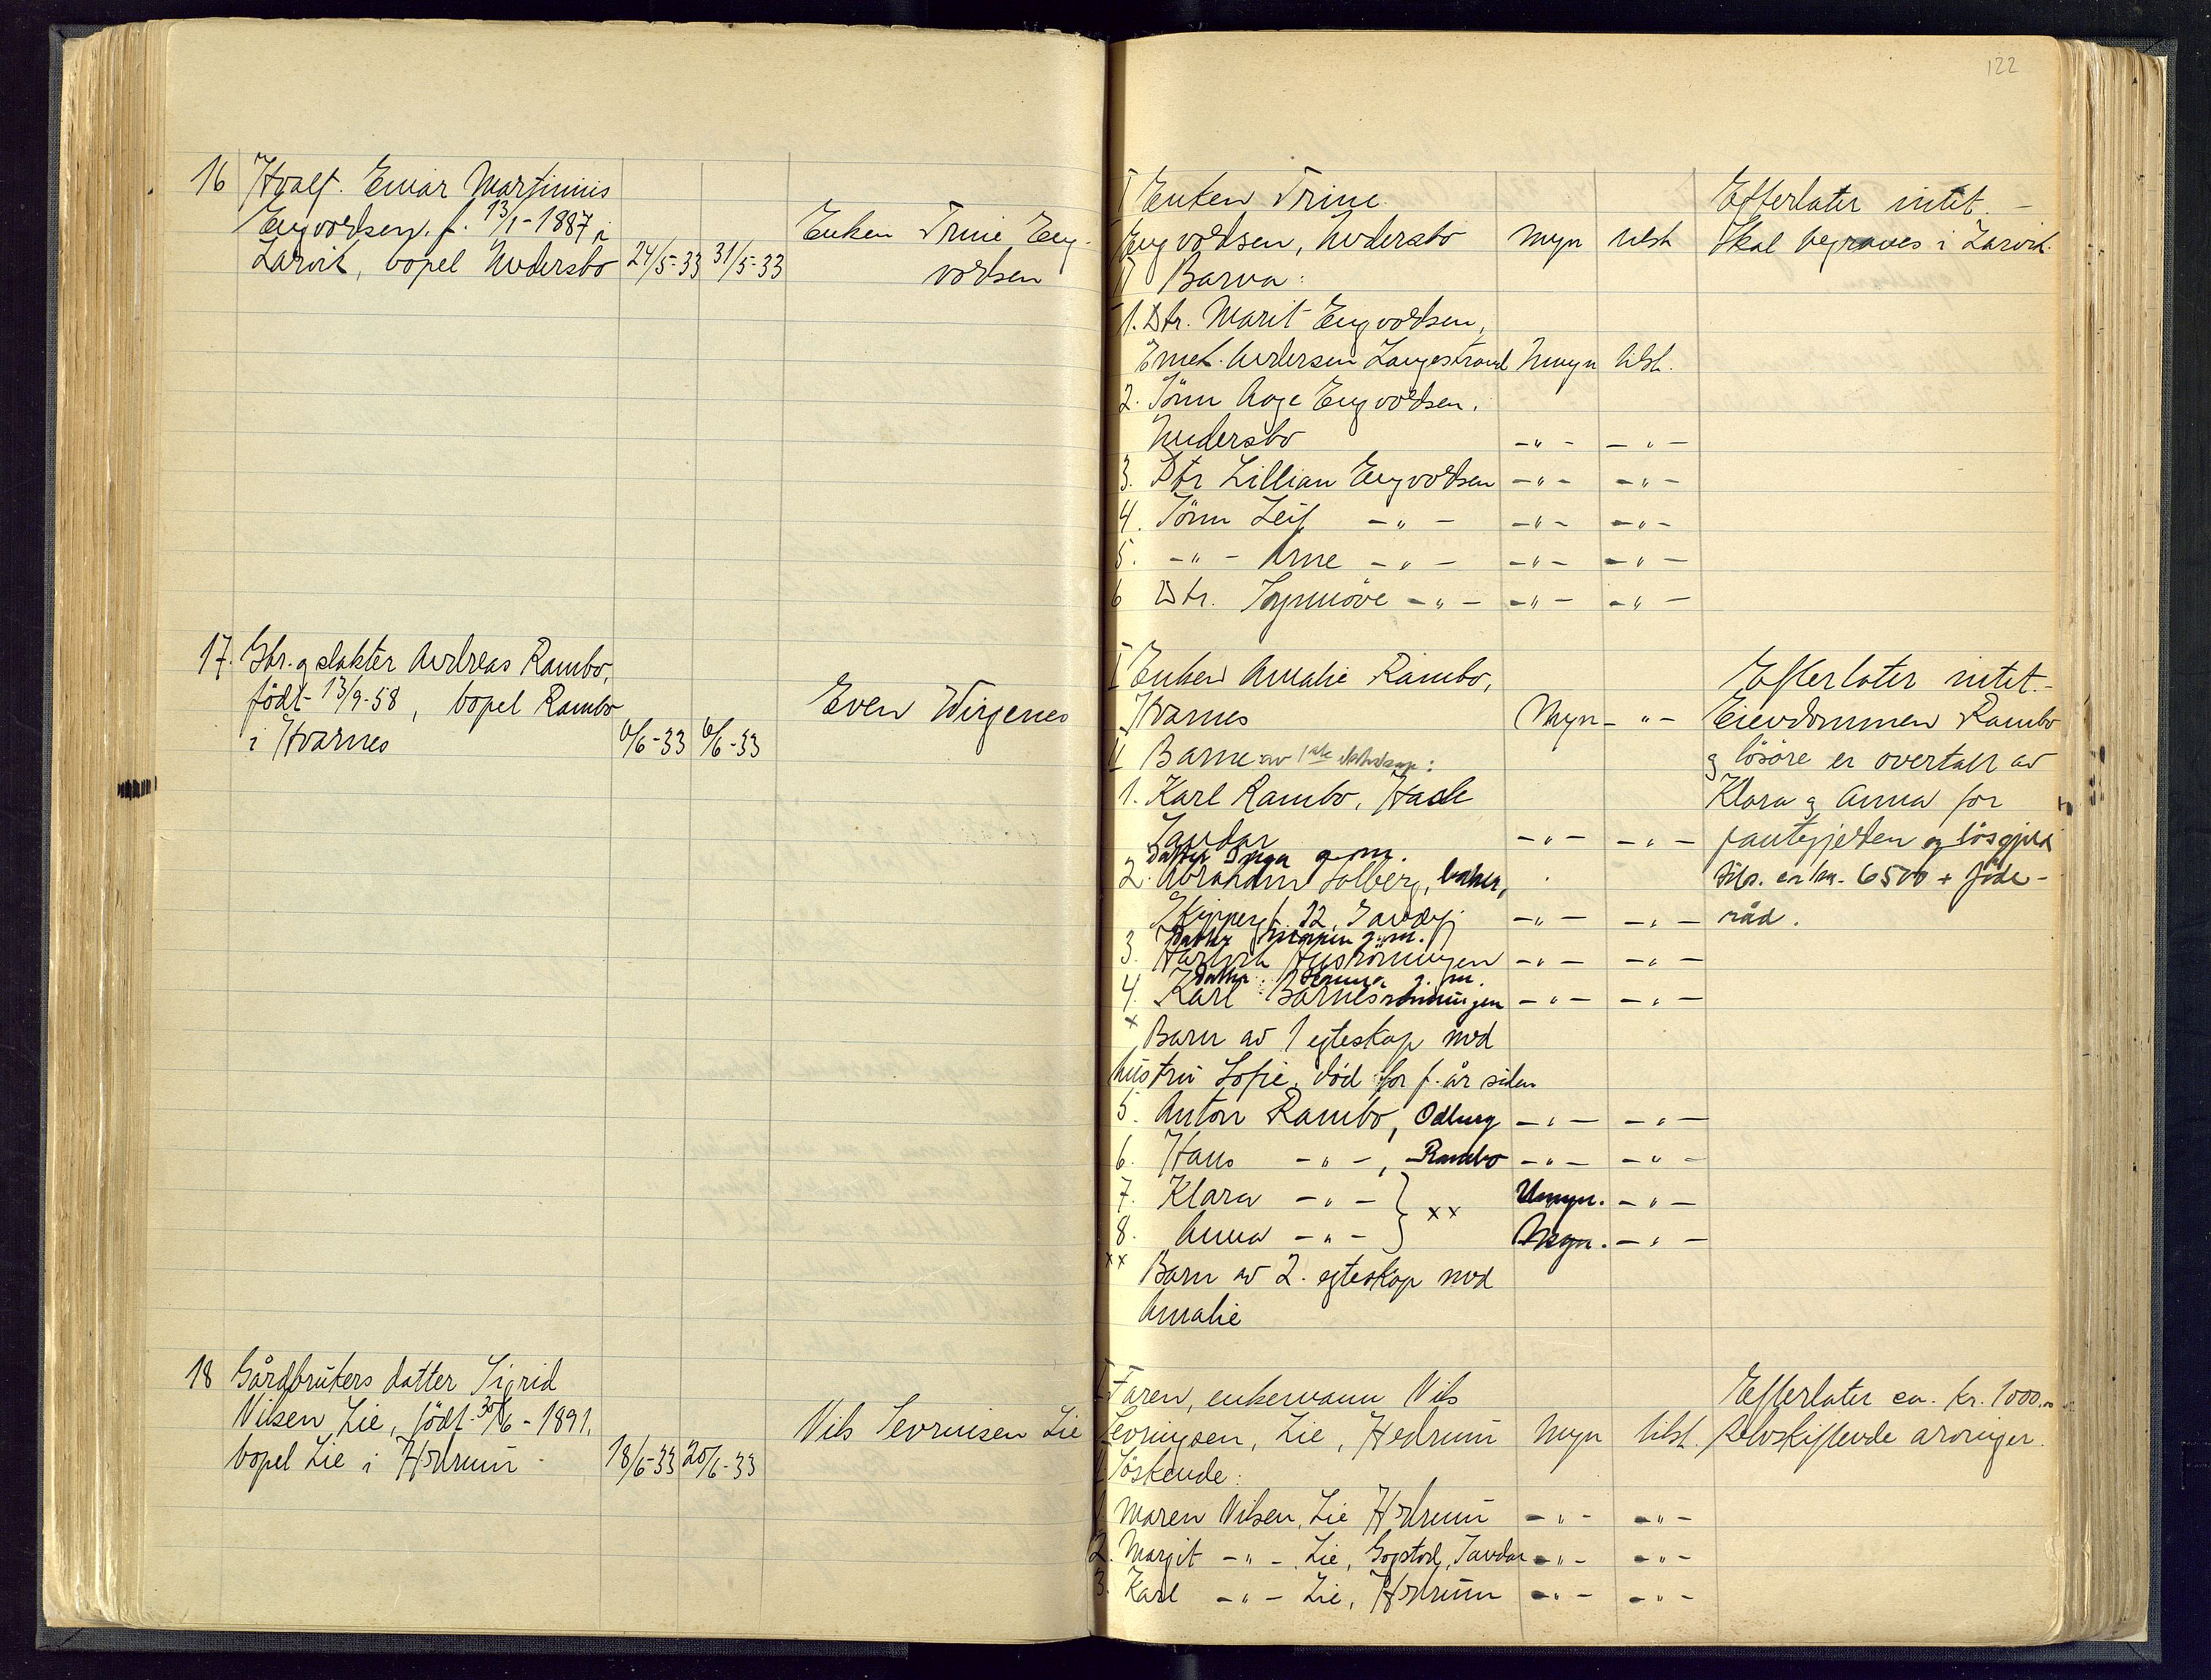 122
16 Hvalf. Einar Martinius
Engvoldsen. f. 13/1-1887 i
Larvik, bopel Undersbo 24/5-33 31/5-33
Enken Trine Eng-
voldsen
I Enken Trine
Engvoldsen, Undersbo Myn tilst.
II Barna:
1. Dtr. Marit Engvoldsen,
Andersen Langestrand Umyn tilst.
2. Sønn Aage Engvoldsen,
Undersbo -"- -"-
3. Dtr Lillian Engvoldsen -"- -"-
4. Sønn Leif -"- -"- -"-
5. -"- Arne -"- -"- -"-
6 Dtr. Synnöve -"- -"- -"-
Efterlater intet. -
Skal begraves i Larvik.
17. Gbr. og slakter Andreas Rambo,
födt 13/9-58, bopel Rambo
i Hvarnes 6/6-33 6/6-33
Even Wirgenes
I Enken Amalie Rambo,
Hvarnes Myn -"-
II Barn av 1ste ekteskap:
1. Karl Rambo, Hasle
Sandar -"- -"-
Datter Inga g. m.
2. Abraham Solberg, baker,
Skippergt. 12, Sandefj. -"- -"-
Datter g.m.
3. -"- -"-
Datter Hanna g. m.
4. Karl Barnesrønningen -"- -"-
x Barn av 1 egteskap med
hustru Sofie, död for f. år siden
5. Anton Rambo, Odberg -"- -"-
6. Hans -"-, Rambo -"- -"-
7. Klara -"- } xx Umyn. -"-
8. Anna -"- Myn. -"-
xx Barn av 2. egteskap med
Amalie
Efterlater intet. -
Eiendommen Rambo
og lösöre er overtatt av
Klara og Anna for
pantegjelden og lösgjeld
tils. ca kr. 6500 + föde-
råd.
18 Gårdbrukers datter Sigrid
Nilsen Lie, födt 30/6-1891.
bopel Lie i Hedrum 18/6-33 20/6-33
Nils Sevrinsen Lie
I Faren, enkemann Nils
Sevrinsen, Lie, Hedrum Myn tilst.
II Söskende:
1. Maren Nilsen, Lie Hedrum -"- -"-
2. Margit -"- Lie, Gogstad, Sandar -"- -"-
3. Karl -"- Lie, Hedrum -"- -"-
Efterlater ca. kr. 1000.00
Selvskiftende arvinger.